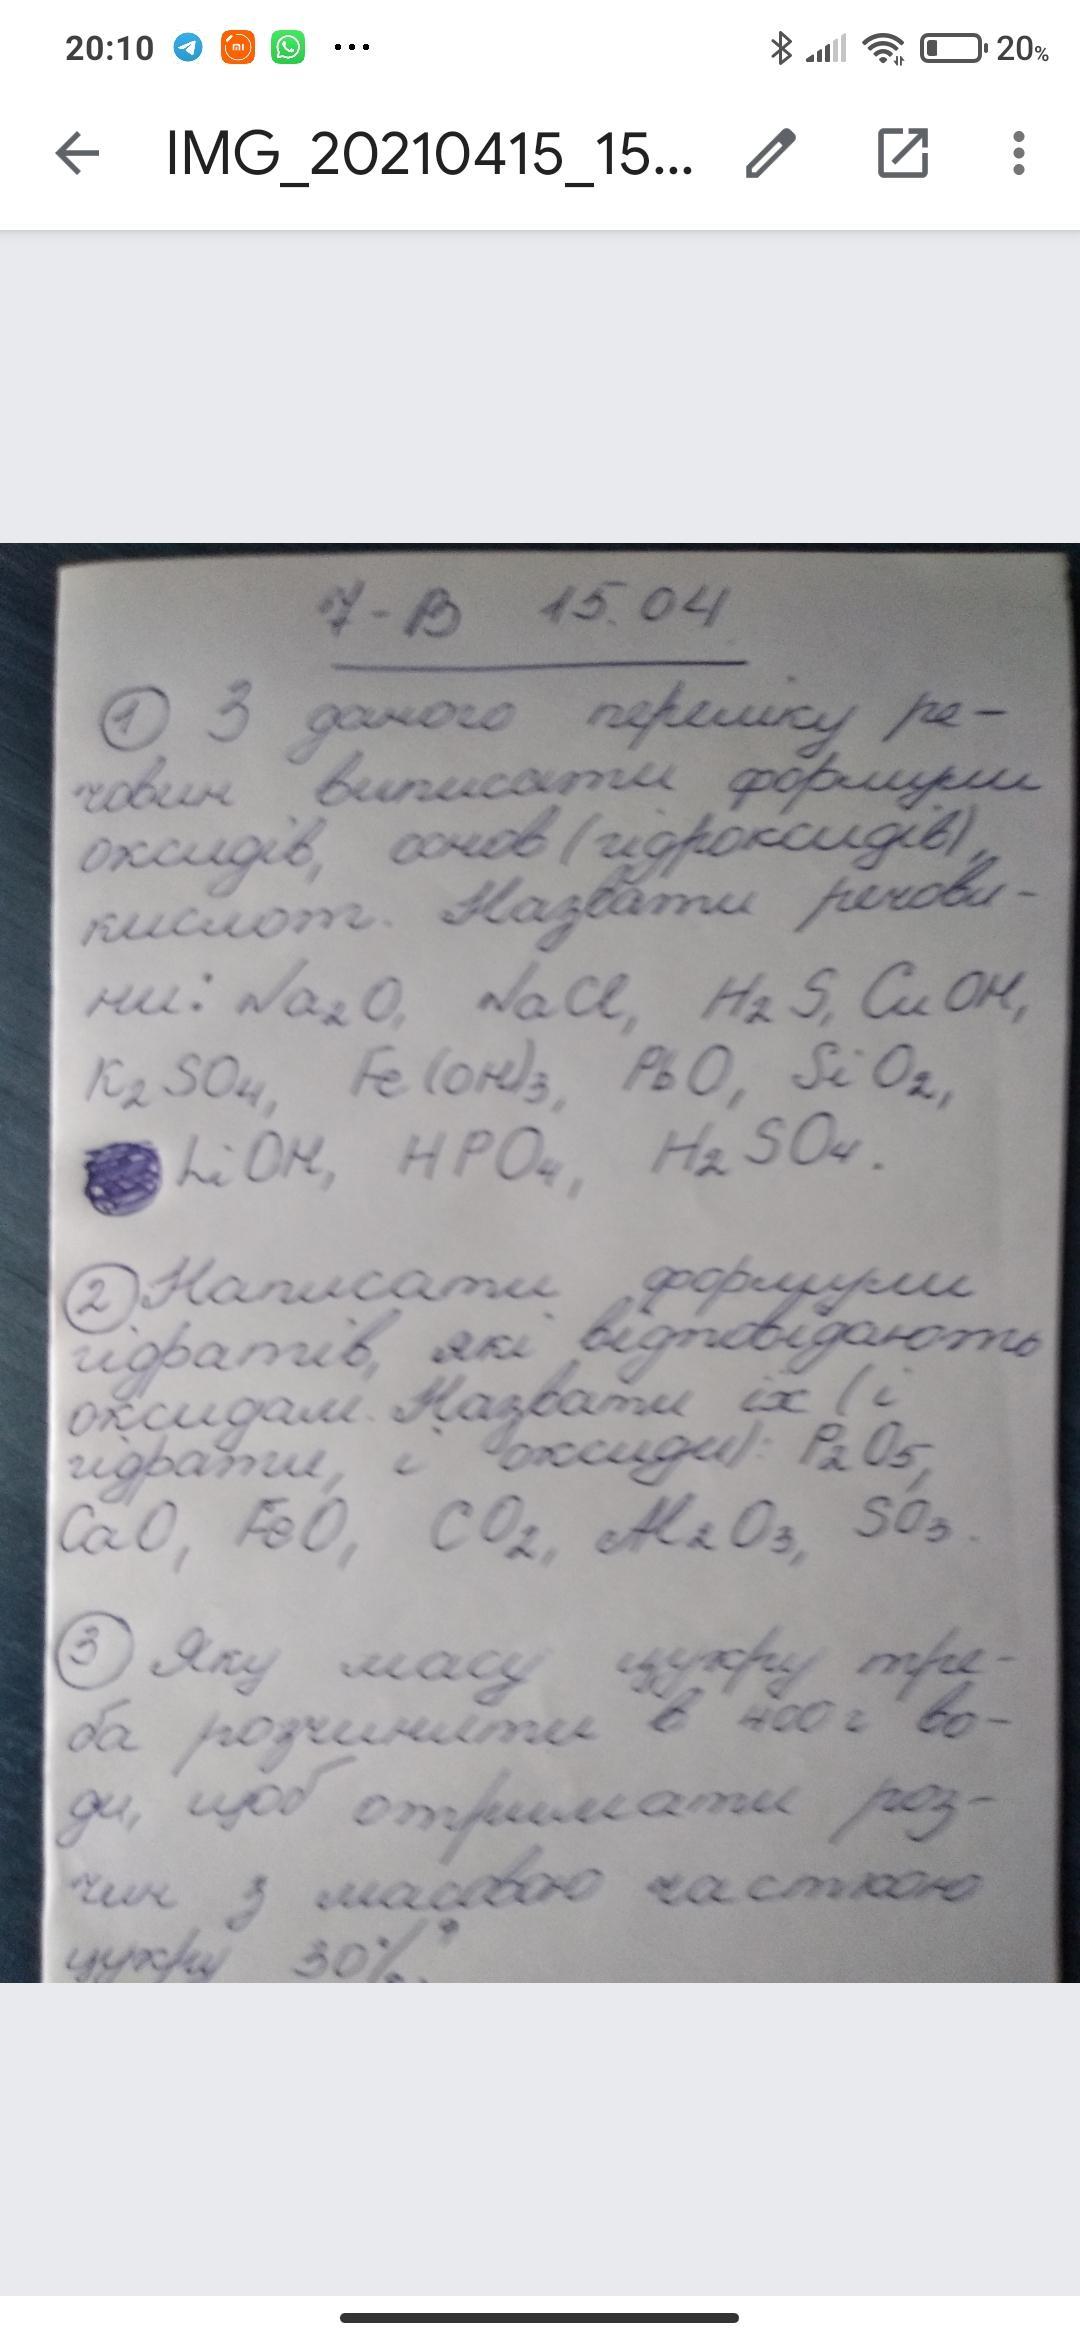 20:10
20%
IMG_20210415_15...
7-В 15.04
1 З даного переліку ре-
човин виписати формули
оксидів, основ (гідроксидів),
кислот. Назвати речови-
ни: Na₂O, NaCl, H₂S, CuOH,
K₂SO₄, Fe(OH)₃, PbO, SiO₂,
LiOH, HPO₄, H₂SO₄.
2 Написати формули
гідратів, які відповідають
оксидам. Назвати їх (і
гідрати, і оксиди): P₂O₅,
CaO, FeO, CO₂, Al₂O₃, SO₃.
3 Яку масу цукру тре-
ба розчинити в 400 г во-
ди, щоб отримати роз-
чин з масовою часткою
цукру 30%?